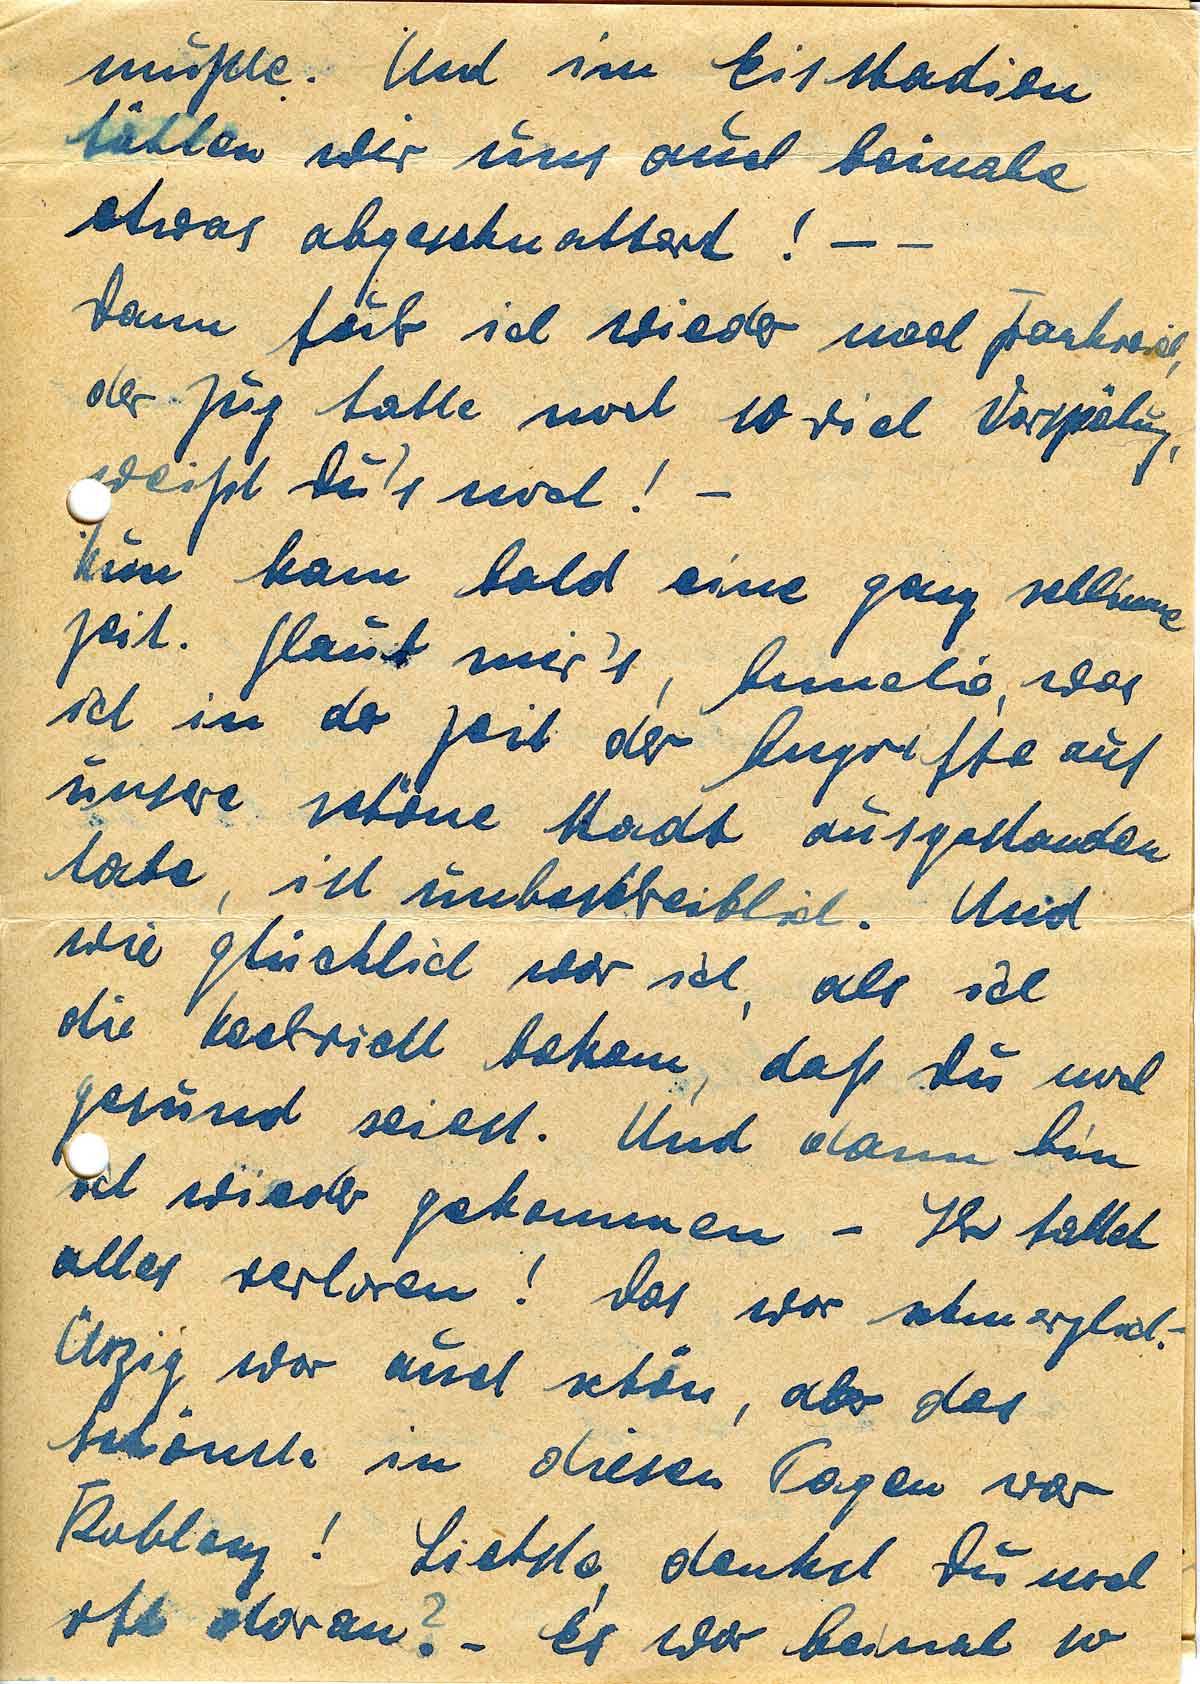 mußte. Und im Eisstadion
hätten wir uns auch beinahe
etwas abgeschnattert! – –
Dann fuhr ich wieder nach Frankreich,
der Zug hatte noch so viel Verspätung,
weißt Du's noch! –
Nun kam bald eine ganz schlimme
Zeit. Glaub mir's, Annelie, was
ich in der Zeit der Angriffe auf
unsere schöne Stadt ausgestanden
habe, ist unbeschreiblich. Und
wie glücklich war ich, als ich
die Nachricht bekam, daß Du noch
gesund seiest. Und dann bin
ich wieder gekommen – Ihr hattet
alles verloren! Das war schmerzlich. –
Ürzig war auch schön, aber das
Schönste in diesen Tagen war
Koblenz! Liebste, denkst Du noch
oft daran? – Es war beinah so